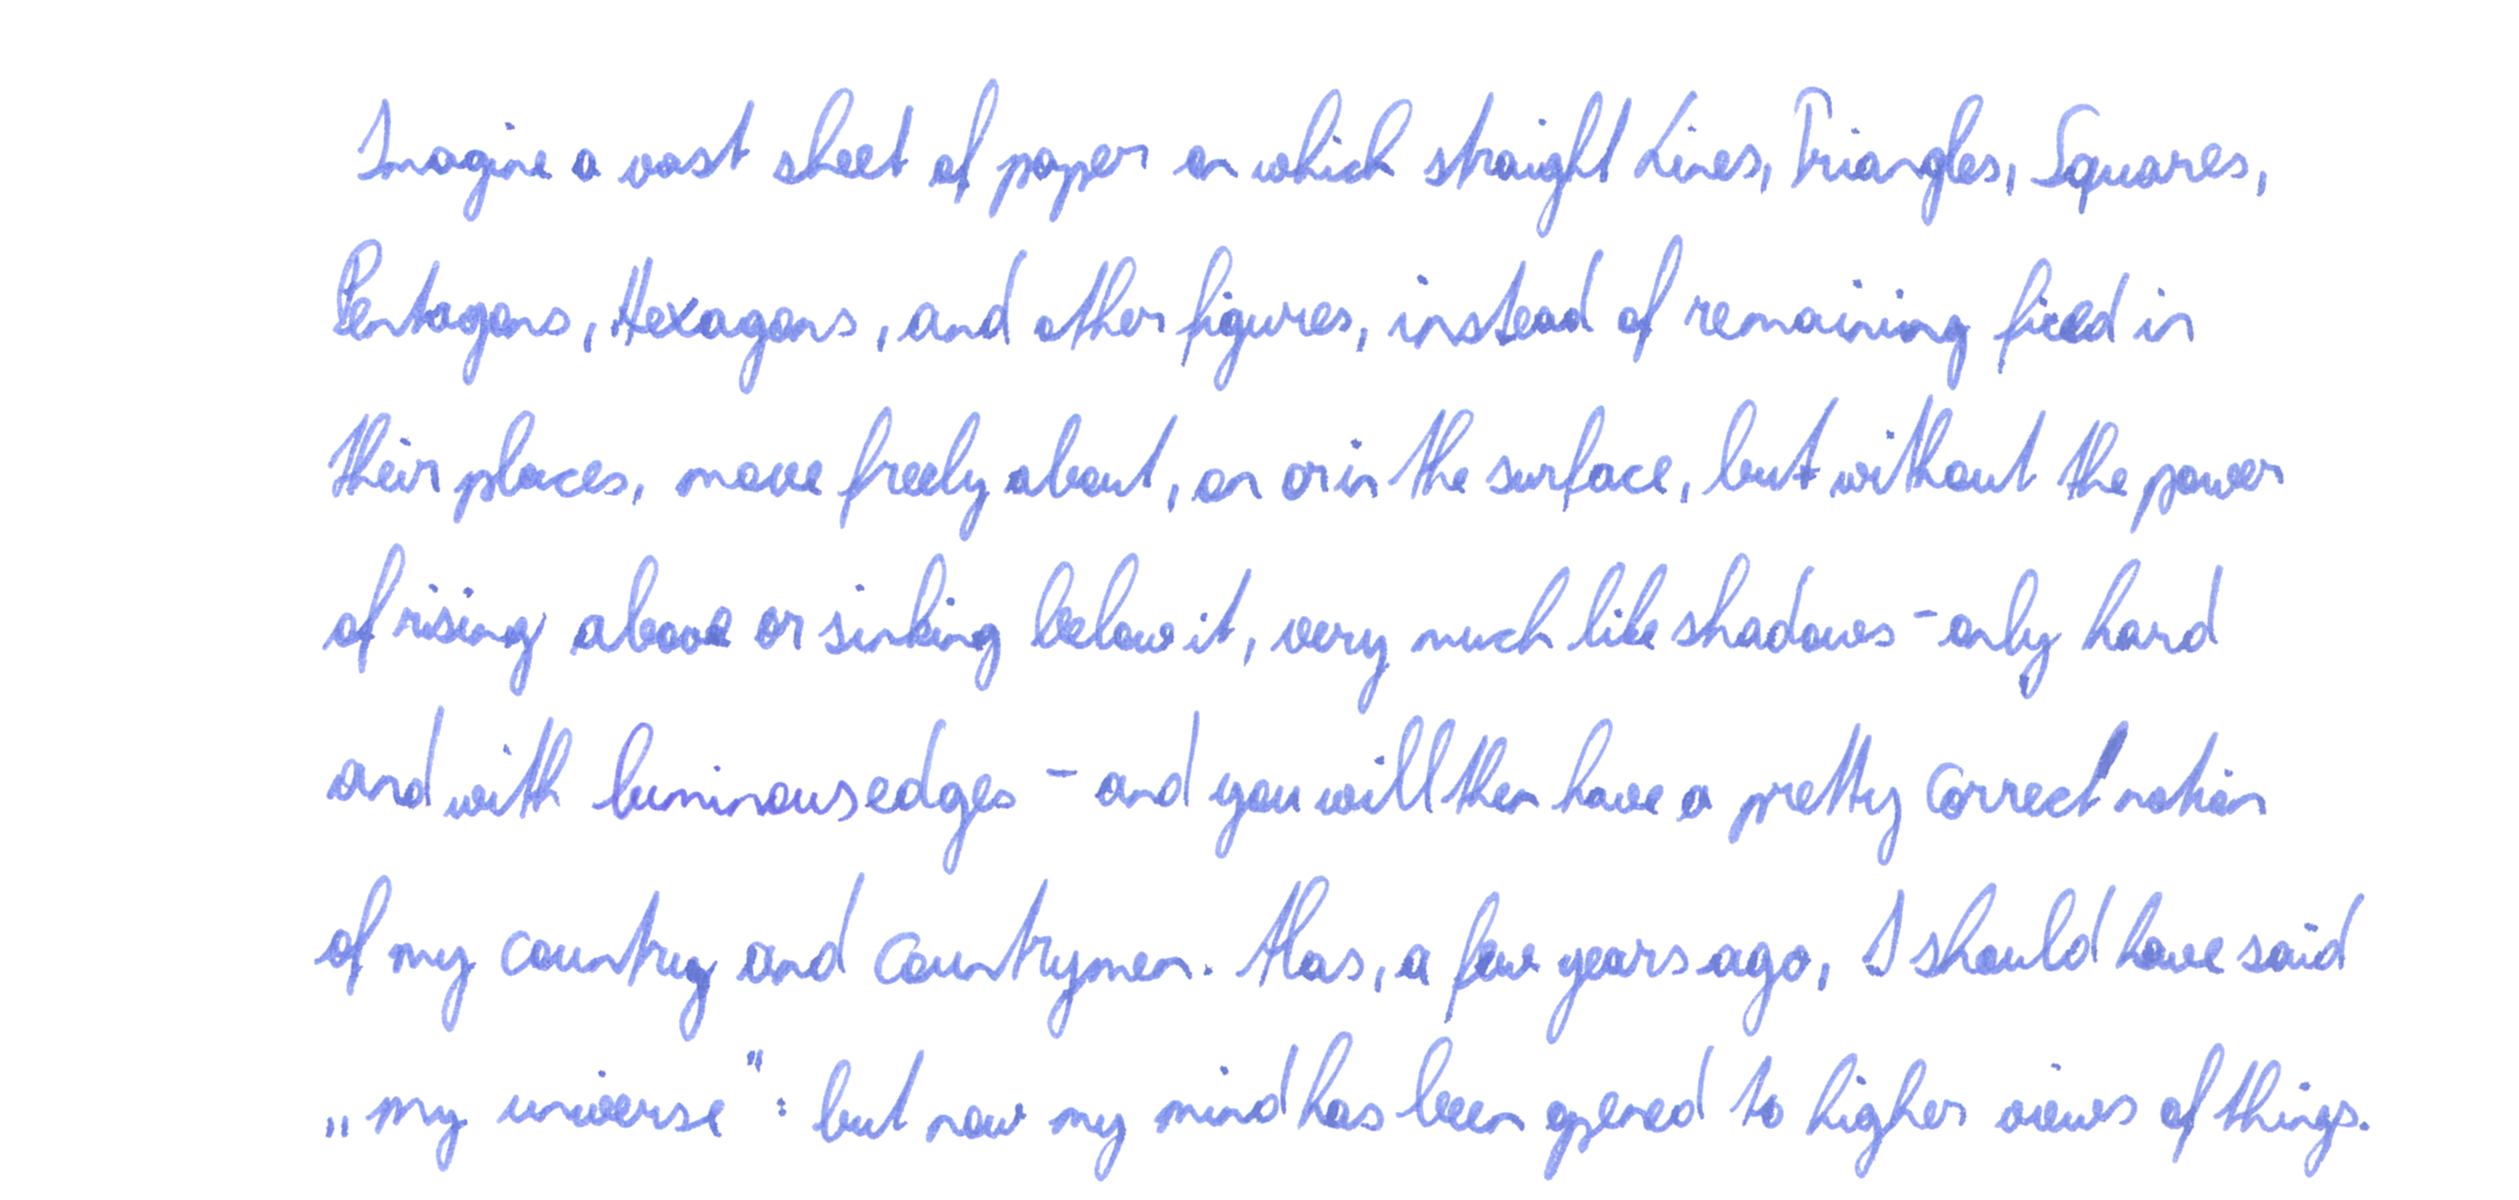 Imagine a vast sheet of paper on which straight Lines, Triangles, Squares,
Pentagons, Hexagons, and other figures, instead of remaining fixed in
their places, move freely about, on or in the surface, but without the power
of rising above or sinking below it, very much like shadows - only hard
and with luminous edges - and you will then have a pretty correct notion
of my country and countrymen. Alas, a few years ago, I should have said
„my universe“: but now my mind has been opened to higher views of things.